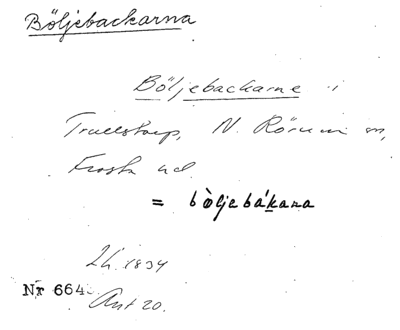 Böljebackarna
Böljebackarne i
Trulstorp, N. Rörum sn,
Frosta hd
= bòljebákana
Lh. 1834
Nr 664
Ant 20.